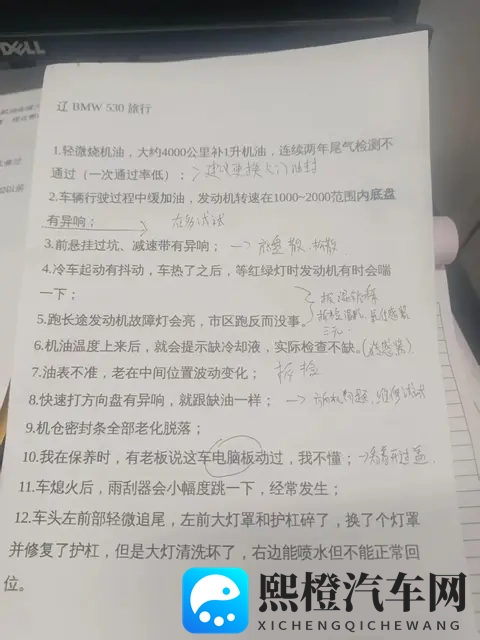 DELL
辽 BMW 530 旅行
1.轻微烧机油，大约4000公里补1升机油，连续两年尾气检测不
通过（一次通过率低）；建议更换气门油封
2.车辆行驶过程中缓加油，发动机转速在1000~2000范围内底盘
有异响；
3.前悬挂过坑、减速带有异响；
4.冷车起动有抖动，车热了之后，等红绿灯时发动机有时会喘
一下；
5.跑长途发动机故障灯会亮，市区跑反而没事。
6.机油温度上来后，就会提示缺冷却液，实际检查不缺。
7.油表不准，老在中间位置波动变化；拆检
8.快速打方向盘有异响，就跟缺油一样；
9.机仓密封条全部老化脱落；
10.我在保养时，有老板说这车电脑板动过，我不懂；
11.车熄火后，雨刮器会小幅度跳一下，经常发生；
12.车头左前部轻微追尾，左前大灯罩和护杠碎了，换了个灯罩
并修复了护杠，但是大灯清洗坏了，右边能喷水但不能正常回
位。
熙橙汽车网
XICHENGQICHEWANG